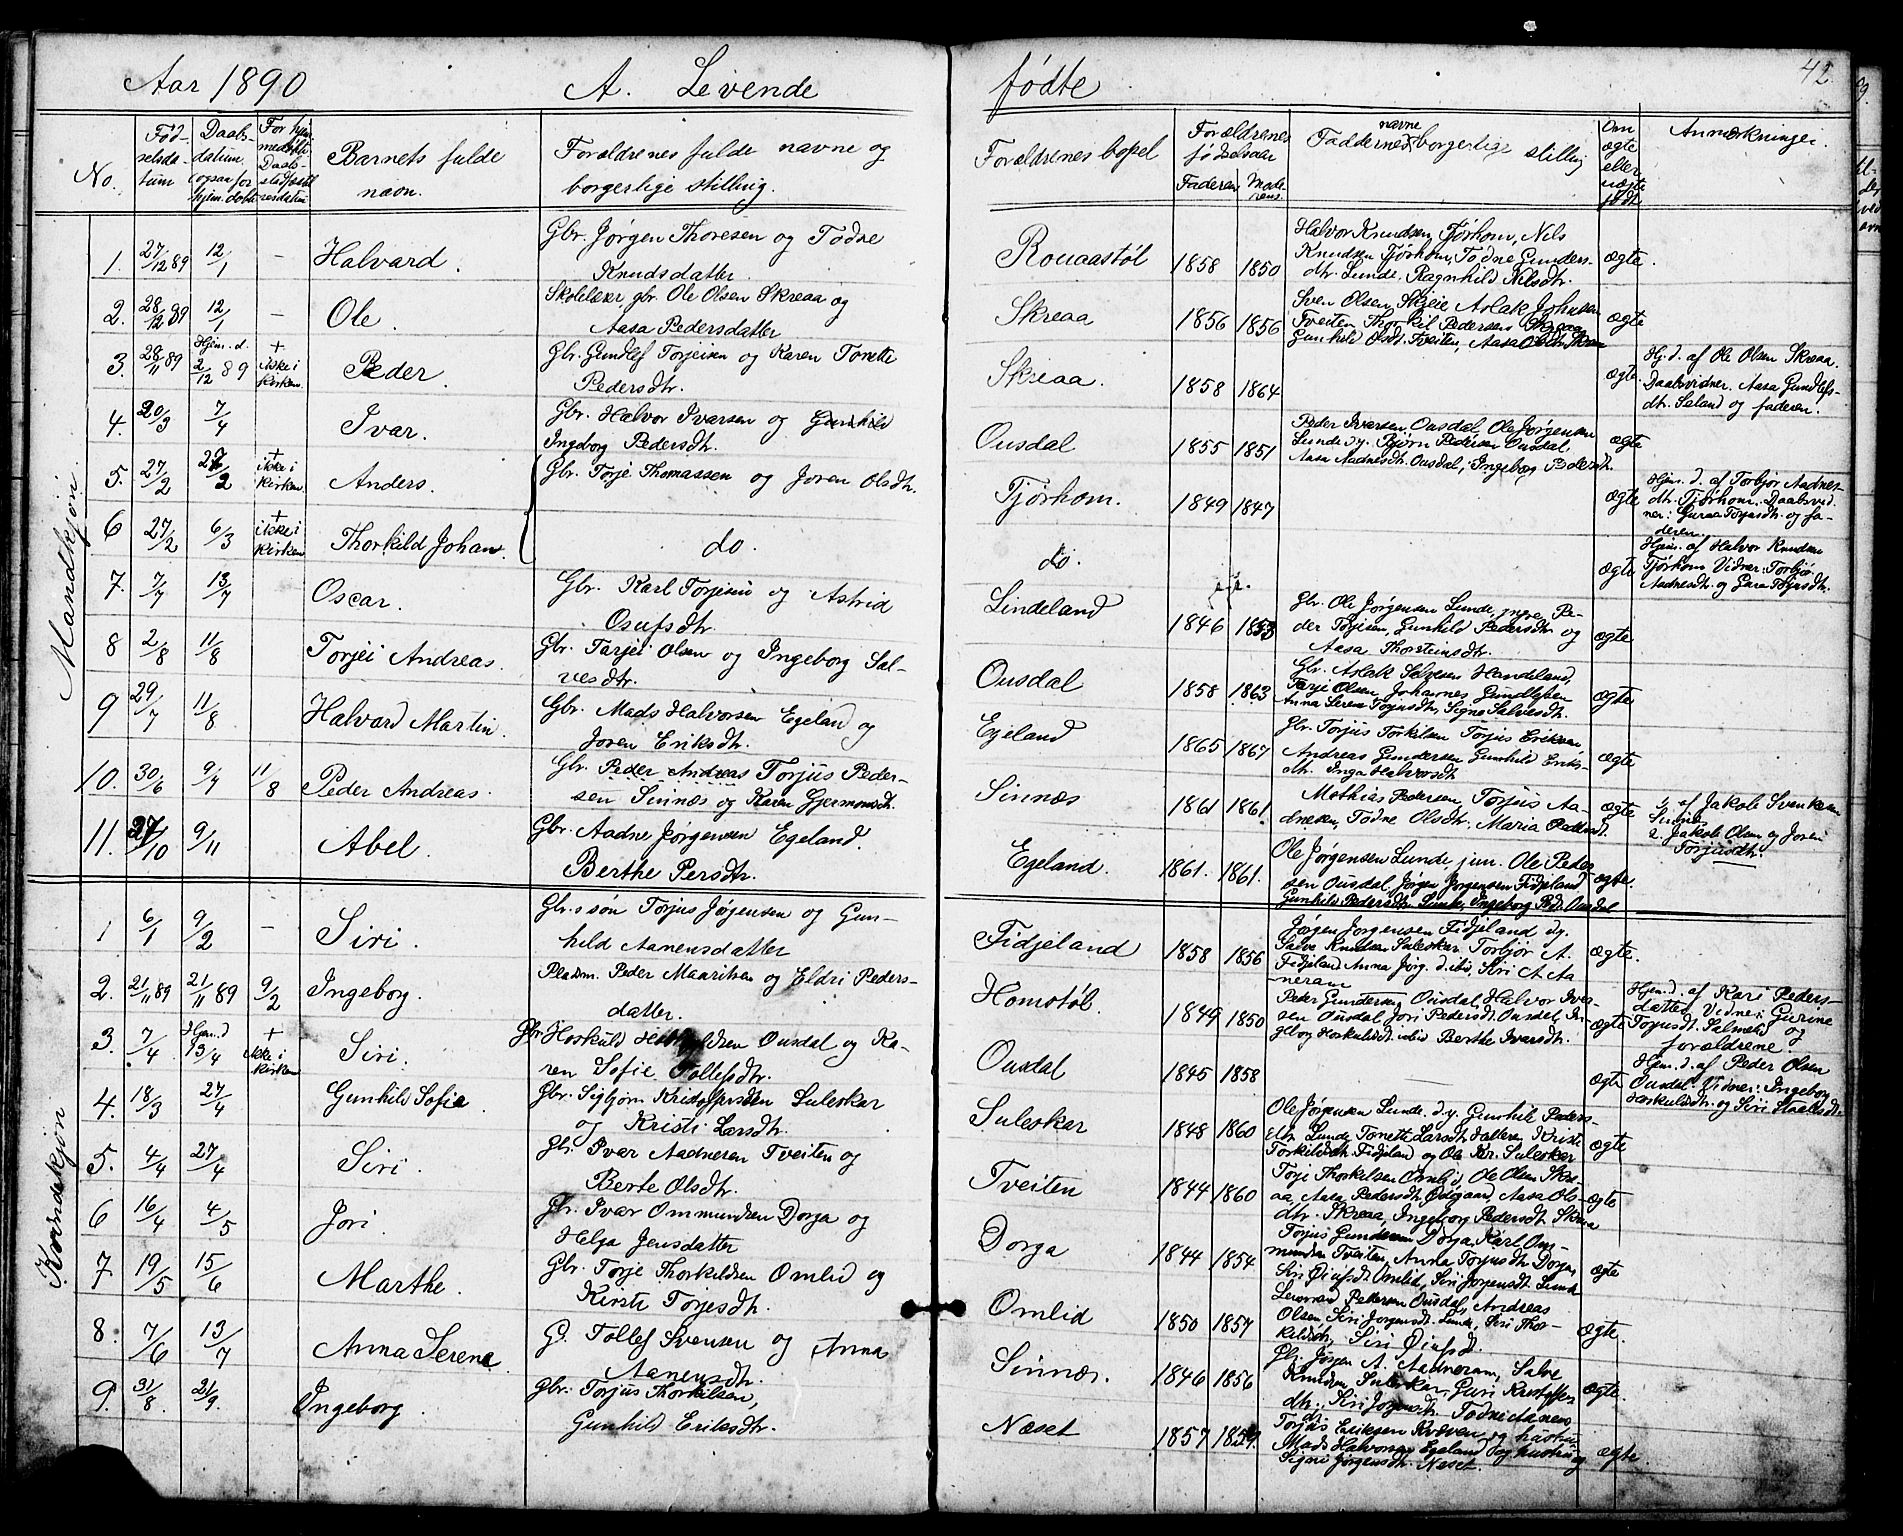 Aar 1890 A. Levende fødte 42
No. Fødselsdatum Daabsdatum ogsaa for hjem. døbte For hjemmedøbte Daabsstadfæstelsesdatum Barnets fulde navn. Forældrenes fulde navne og borgerlige stilling. Forældrenes bopel Forældrenes fødselsaar Faderens Moderens Faddernes navne borgerlige stilling Om ægte eller uægte født Anmærkninger.
Mandkjøn.
1. 27/12 89 12/1 - Halvard. Gbr. Jørgen Thoresen og Todne Knudsdatter. 1858 1850 Halvor Knudsen Tjørhom, Nils Knudsen Tjørhom, Todne Gundersdtr. Lunde, Ragnhild Nilsdtr. ægte.
2. 28/12 89 12/1 - Ole. Skolelærer gbr. Ole Olsen Skreaa og Aasa Pedersdatter Skreaa 1856 1856 Sven Olsen Skjeie Aslak Johnsen Tveiten, Thorkil Pedersen Skreaa Gunhild Olsd. Tveiten, Aasa ægte
3. 28/11 89 Hjm. d. 2/12 89 + ikke i kirken Peder. Gbr. Gundlef Torjeisen og Karen Tonette Pedersdtr. Skreaa. 1858 1864 ægte Hj. d. af Ole Olsen Skreaa. Daabsvidner. Aasa Gundlefsdtr. Seland og faderen.
4. 20/3 7/4 Ivar. Gbr. Halvor Ivarsen og Ingeborg Pedersdtr. Ousdal 1855 1851 Peder Iversen Ousdal Ole Jørgensen Lunde d.y. Bjørn Pedersen Ousdal, Aasa Aadnesdtr. Ousdal, Ingeborg Pedersdtr. ægte
5. 27/2 27/2 + ikke i kirken Anders. Gbr. Torje Thomassen og Joren Olsdtr. Tjørhom. 1849 1847 ægte Hjem. d. af Torbjør Aadnesdtr. Tjørhom. Daabsvidner: Guraa Torjusdtr. og faderen.
6 27/2 6/3 + ikke i kirken Thorkild Johan. do. do. ægte Hjem. af Halvor Knudsen Tjørhom Vidner: Torbjør Aadnesdtr. og Gura Torjusdtr.
7. 7/7 13/7 Oscar. Gbr. Karl Torjesen og Astrid Osufsdtr. Lindeland 1846 1853 Gbr. Ole Jørgensen Lunde, yngre, Peder Torjesen, Gunhild Pedersdtr og Aasa Thorsteinsdtr. ægte
8 2/8 11/8 Torjei Andreas. Gbr. Tarjei Olsen og Ingeborg Salvesdtr. Ousdal 1858 1863 Gbr. Aslak Salvesen Handeland, Tarje Olsen, Johannes Gundlefsen Anna Serena Torjusdtr, Signe Salvesdtr. ægte
9 29/7 11/8 Halvard Martin. Gbr. Mads Halvorsen Egeland og Joren Eriksdtr. Egeland 1865 1867 Gbr. Torjus Torkilsen Torjus Eriksen, Andreas Gundersen Gunhild Eriksdtr. Inga Halvorsdtr. ægte
10. 30/6 9/7 11/8 Peder Andreas. Gbr. Peder Andreas Torjus Pedersen Sinnæs og Karen Gjermundsdtr. Sinnæs 1861 1861. Mathias Pedersen, Torjus Aadnesen, Todne Olsdtr. Maria Pedersdtr. ægte 1. af Jakob Svenksen Sinnæs 2. Jakob Olsen og Joren Torjusdtr.
11. 27/10 9/11 Abel. Gbr. Aadne Jørgensen Egeland. Berthe Persdtr. Egeland. 1861. 1861. Ole Jørgensen Lunde jun. Ole Pedersen Ousdal, Jørgen Jørgensen Fidjeland Gunhild Pedersdtr Lunde, Ingeborg Ped. Ousdal ægte.
Kvindekjøn
1 6/1 9/2 - Siri. Gbr.s søn Torjus Jørgensen og Gunhild Aanensdatter Fidjeland 1858 1856 Jørgen Jørgensen Fidjeland d.y. Salve Knudsen Suleskar, Torbjør A. Fidjeland Anna Jørg. d. ibid, Siri A. Aaneram ægte.
2. 21/11 89 21/11 89 9/2 Ingeborg. Pladsm. Peder Mauritsen og Eldri Pedersdatter. Homstøl 1849 1850 Peder Gundersen Ousdal, Halvor Iversen Ousdal, Jori Pedersdt. Ousdal, Ingeborg Hoskuldsdt. ibid Berthe Ivarsdt. ægte Hjem. d. af Kari Pedersdatter. Vidner: Gurine Torjusdt. og forældrene.
3. 7/4 Hjm. d 13/4 + ikke i kirken Siri. Gbr. Hoskuld Ousdal og Karen Sofie Tollefsdtr. Ousdal 1845 1858 ægte Hjem. d. af Peder Olsen Ousdal. Vidner: Ingeborg Hoskuldsdt. og Siri
4. 18/3 27/4 Gunhild Sofie Gbr. Sigbjørn Kristoffersen Suleskar og Kristi Larsdtr. Suleskar 1848 1860 Ole Jørgensen Lunde d.y. Gunhild Pedersdtr. Lunde Tonette Larsdt. Kristi Torkildsdt. Fidjeland og Ole Kr. Suleskar ægte
5. 4/4 27/4 Siri. Gbr. Ivar Aadnesen Tveiten og Berte Olsdtr. Tveiten 1844 1860 Torje Thorkelsen Omlid, Ole Olsen Skreaa, Aasa Pedersdt. Ødegaard, Aasa Olsdtr. Skreaa, Ingeborg Pedersdt. Skreaa ægte
6 16/4 4/5 Jori. Gbr. Ivar Ommundsen Dorga og Helga Jensdatter Dorga 1844 1854 Torjus Gundersen Dorga, Karl Ommundsen Tveiten, Anna Torjusdt. Dorga, Siri Øiufsdt. Omlid, Siri Jørgensdt. Lunde ægte
7. 19/5 15/6 Marthe. Gbr. Torje Thorkildsen Omlid og Kirsti Torjesdtr. Omlid 1850 1857 Pedersen Ousdal, Andreas Olsen Siri Jørgensdt. Lunde, Siri Thorkildsdtr, Siri Øiufsd. ægte.
8. 7/6 13/7 Anna Serena G. Tollef Svensen og Anna Aanensdtr. Sinnæs. 1846 1856 Gbr. Jørgen A. Aadneram, Salve Knudsen Suleskar, Guri Kristoffersdtr. Siri Jørgensdtr. Todne Aanensdt. ægte.
9. 31/8 21/9. Ingeborg. Gbr. Torjus Thorkilsen, Gunhild Eriksdtr. Næset 1857 Torjus Eriksen Kvæven og hustru, Mads Halvorsen Egeland og hustru og Signe Jørgensdt. Næset. ægte.